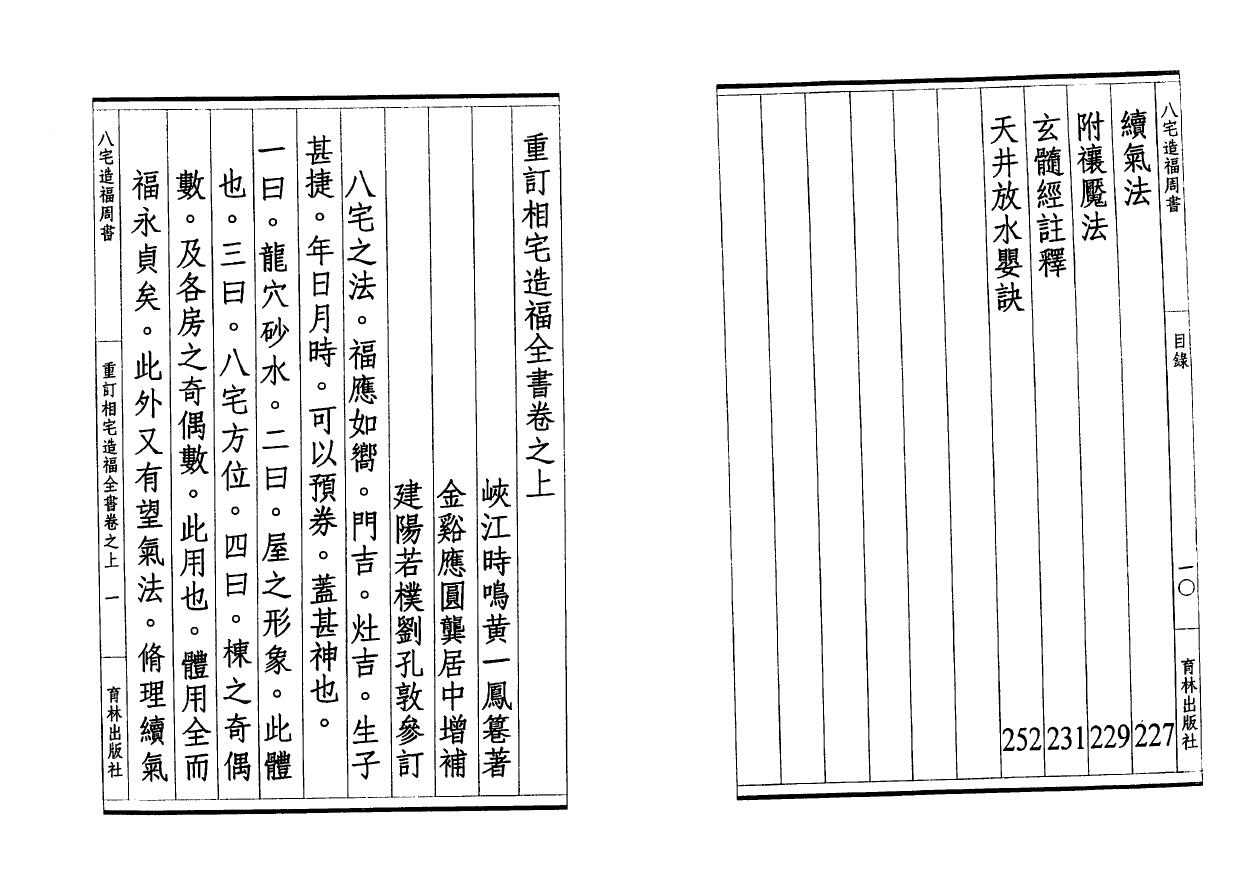 八宅造福周書　目錄　一〇　育林出版社
續氣法　227
附禳魘法　229
玄髓經註釋　231
天井放水嬰訣　252
重訂相宅造福全書卷之上
峽江時鳴黃一鳳篹著
金谿應圓龔居中增補
建陽若樸劉孔敦參訂
八宅之法。福應如嚮。門吉。灶吉。生子
甚捷。年日月時。可以預券。蓋甚神也。
一曰。龍穴砂水。二曰。屋之形象。此體
也。三曰。八宅方位。四曰。棟之奇偶
數。及各房之奇偶數。此用也。體用全而
福永貞矣。此外又有望氣法。脩理續氣
八宅造福周書　重訂相宅造福全書卷之上　一　育林出版社